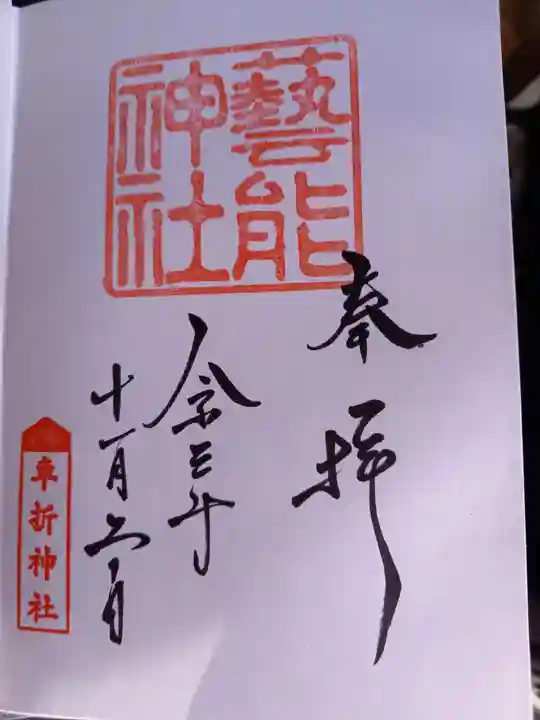 藝能
神社
奉拝
令和三年
十一月六日
車折神社